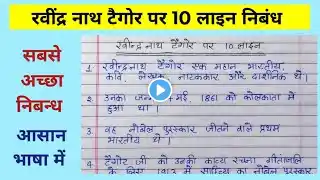 रवींद्र नाथ टैगोर पर 10 लाइन निबंध
सबसे
अच्छा
निबन्ध
आसान
भाषा में
रवीन्द्र नाथ टैगोर पर 10 लाइन
1. रवीन्द्रनाथ टैगोर एक महान भारतीय
कवि, लेखक, नाटककार और दार्शनिक थे।
2. उनका जन्म मई, 1861 को कोलकाता में
हुआ था।
3. वह नोबेल पुरस्कार जीतने वाले प्रथम
भारतीय थे।
4. टैगोर जी को उनकी काव्य रचना गीतांजलि
के लिए 1913 में साहित्य का नोबेल पुरस्कार